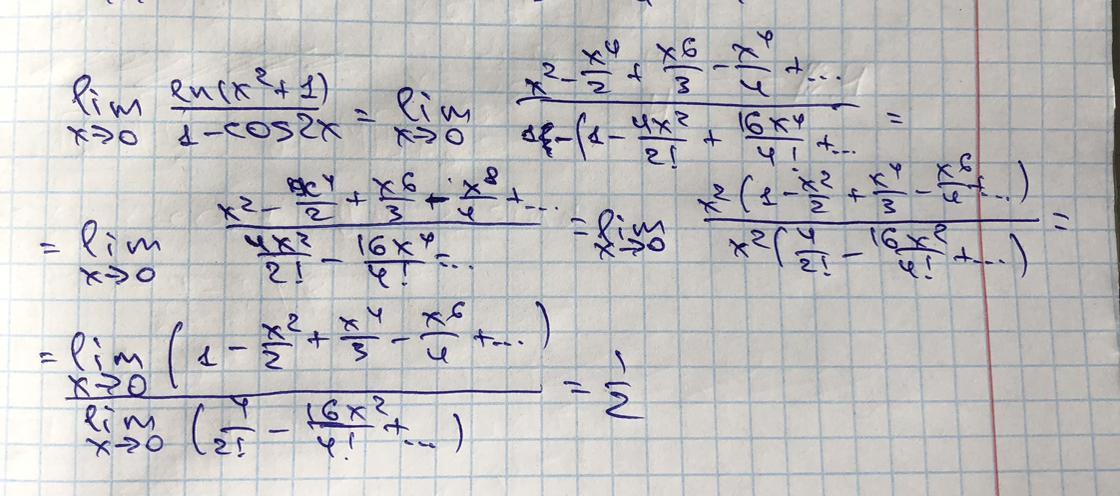 lim x→0 ln(x²+1)/(1-cos2x) = lim x→0 (x² - x⁴/2 + x⁶/3 - x⁴/4 + ...)/(1-(1 - 4x²/2! + 16x⁴/4! + ...) =
= lim x→0 (x² - x⁴/2 + x⁶/3 - x⁸/4 + ...)/(4x²/2! - 16x⁴/4! - ...) = lim x→0 x²(1 - x²/2 + x⁴/3 - x⁶/4 + ...)/x²(4/2! - 16x²/4! + ...) =
= lim x→0 (1 - x²/2 + x⁴/3 - x⁶/4 + ...)/lim x→0 (4/2! - 16x²/4! + ...) = 1/2